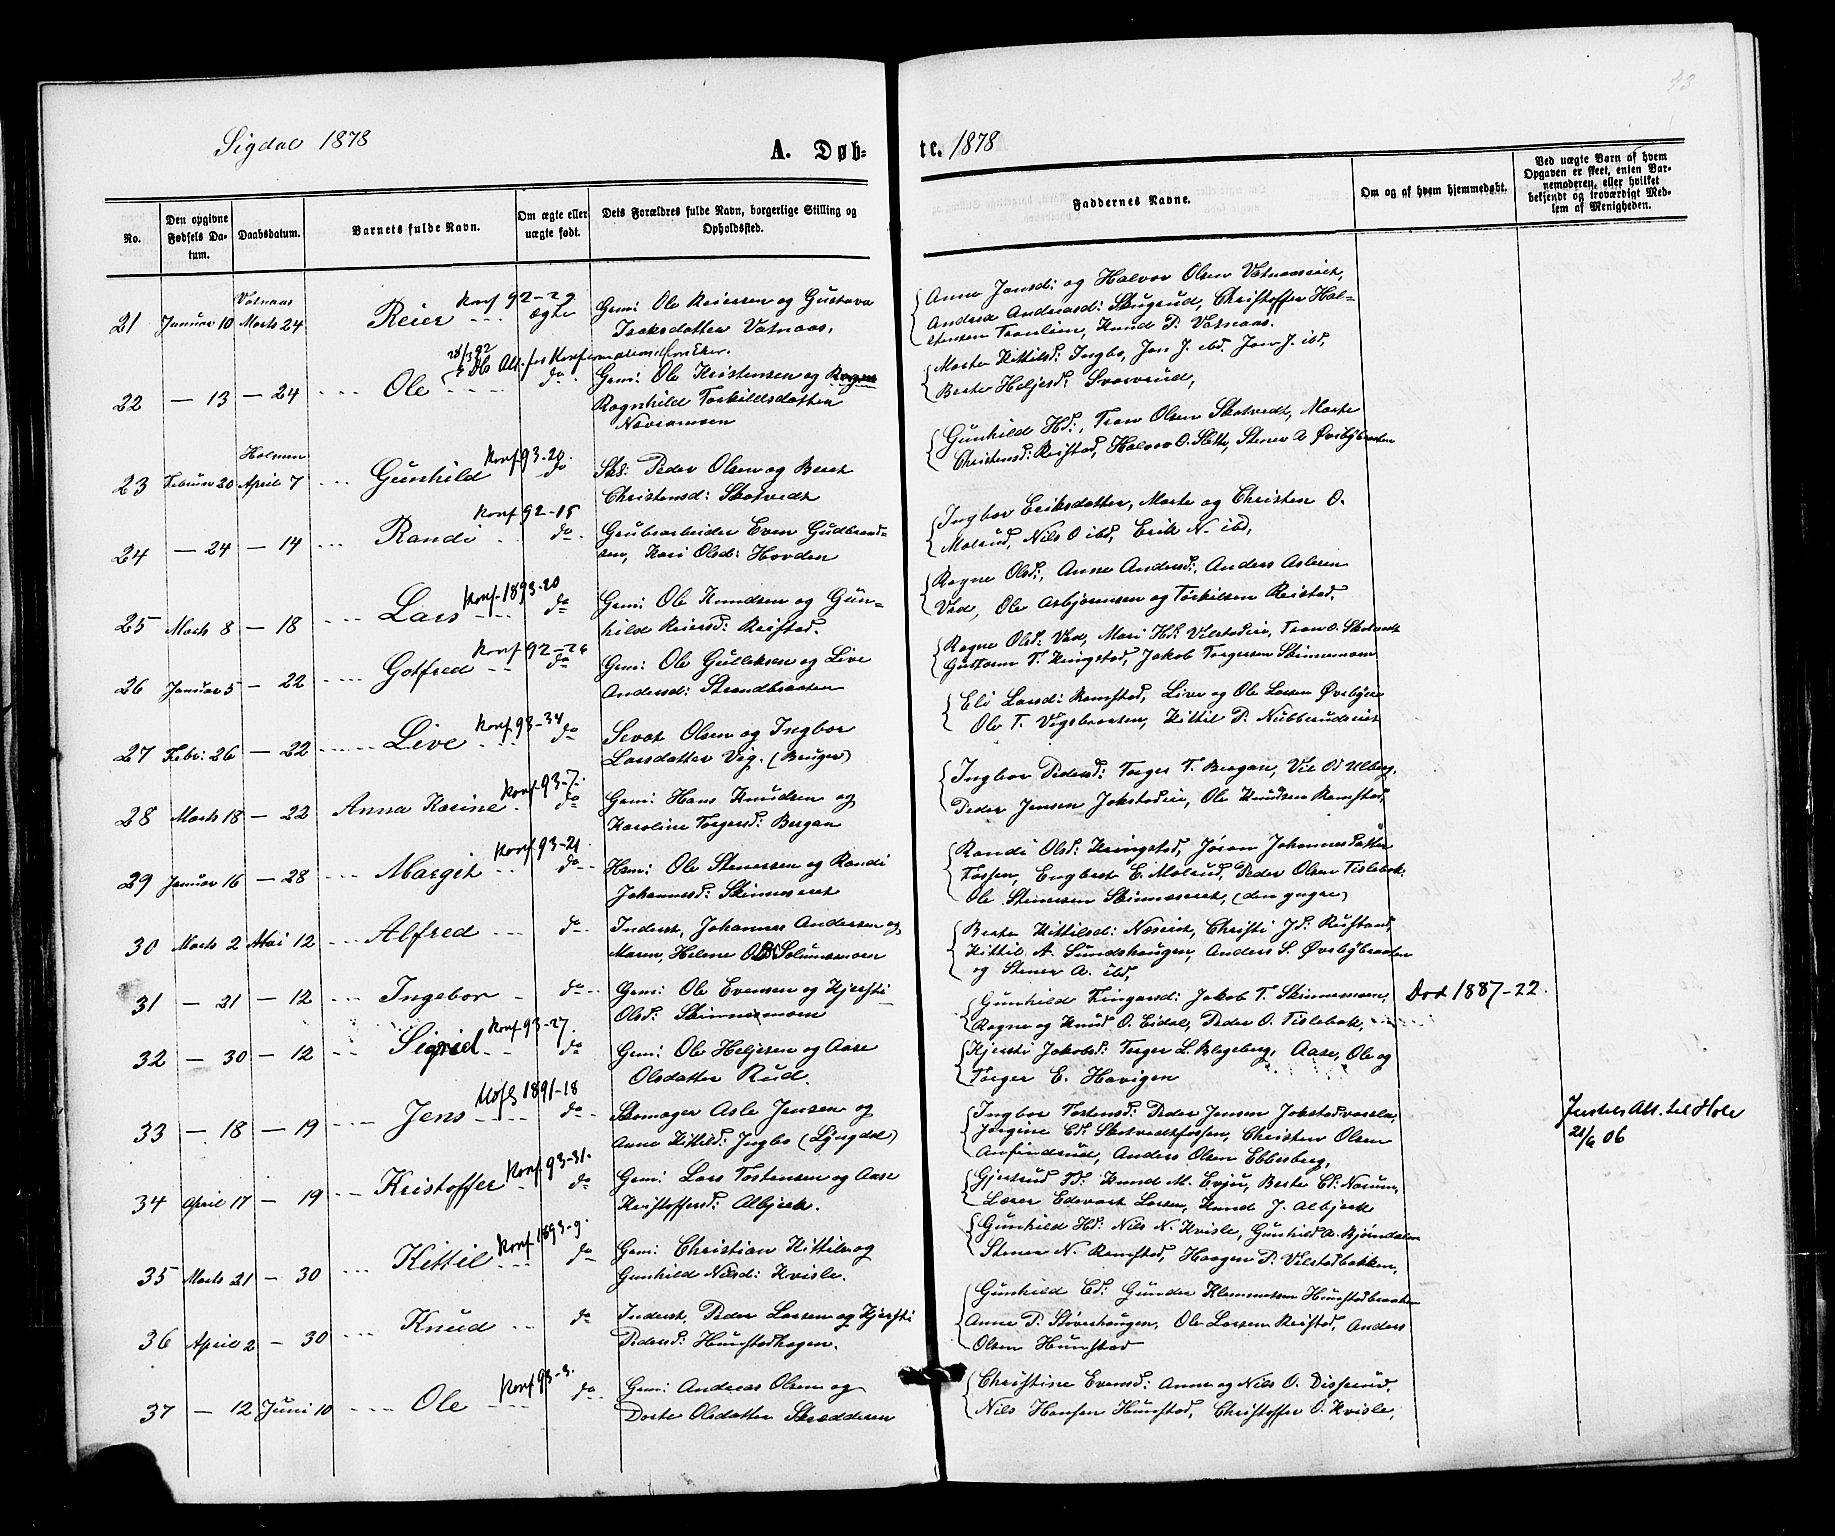 43
Sigdal 1878
A. Døb-
te. 1878
No.
Den opgivne Fødsels Datum.
Daabsdatum.
Barnets fulde Navn.
Om ægte eller uægte født.
Dets Forældres fulde Navn, borgerlige Stilling og Opholdssted.
Faddernes Navne.
Om og af hvem hjemmedøbt.
Ved uægte Børn af hvem Opgaven er skeet, enten Barnemoderen, eller hvilket bekjendt og troværdigt Medlem af Menigheden.
Vatnaas
21 Januar 10 Marts 24 Reier Konf 92-29 Ægte
Gm: Ole Reiersen og Gustava
Isaksdatter Vatnaas.
Anne Jonsd: og Halvor Olsen Vatnaaseiet,
Andrea Andreasd: Skugrud, Christoffer Hal-
stensen Tranlien, Knud P. Vatnaas.
22 — 13 — 24 Ole do
Gm: Ole Kristensen og
Ragnhild Torkildsdatter
Marte Kittilsd: Ingbo, Jon J. ibd, Jon J. ibd,
Berte Heljesd:
Holmen
23 Februar 20 April 7 Gunhild Konf 93-20. do
Peder Olsen og Beret
Christensd: Skatvedt
Gunhild Hd:, Tron Olsen Skatvedt, Marte
Christensd: Reistad, Halvor O. Slette, Stener A Øvsbybraaten
24 — 24 — 14 Randi Konf 92-15 do
Grubearbeider Even Gudbrand-
sen, Kari Olsd: Hovden
Ingbor Eriksdatter, Marte og Christen O.
Molrud, Nils O ibd, Erik N. ibd,
25 Marts 8 — 18 Lars Konf. 1893-20 do
Gm: Ole Knudsen og Gun-
hild Reiersd: Reistad.
Ragne Olsd:, Anne Andersd:, Anders Aslesen
Vad, Ole Asbjørnsen og Torkilsen Reistad.
26 Januar 5 — 22 Gotfred Konf 92-26 do
Gm: Ole Gulleksen og Live
Andersd: Strandbraaten
Ragne Olsd: Vad, Mari Hd: Velstadeie, Tron O. Skatvedt
Gustav T. Kringstad, Jakob Torgersen Skinnesmoen
27 Febr: 26 — 22 Live Konf 93-34 do
Sevat Olsen og Ingbor
Larsdatter Vig. (Bruger)
Eli Larsd: Ramstad, Live og Ole Larsen Øvsbyeie
Ole T. Vigsbraaten, Kittil P. Nubberudeiet
28 Marts 18 — 22 Anna Karine Konf 93-7. do
Gm: Hans Knudsen og
Karoline Torgersd: Bergan
Ingbor Pedersd: Torger T. Bergan,
Peder Jensen Jokstadeie, Ole Knudsen Ramstad,
29 Januar 16 — 28 Margit Konf 93-21. do
Ole Stenersen og Randi
Johannesd: Skinneseiet
Randi Olsd: Kringstad, Jøran Johannesdatter
Fossen, Engbret E. Molrud, Peder Olsen Tislebak,
Ole Stenersen Skinneseiet, (den yngre)
30 Marts 2 Mai 12 Alfred do
Inderst, Johannes Andersen og
Maren Helene Solumsmoen
Berte Kittilsd: Næseiet, Christi Jd: Rustand,
Kittil A. Sundshaugen, Anders S. Øvsbybraaten
og Stener A. ibd,
31 — 21 — 12 Ingebor do
Gm: Ole Evensen og Kjersti
Olsd: Skinnesmoen
Gunhild Fingarsd: Jakob T. Skinnesmoen,
Ragne og Knud O. Eidal, Peder O. Tislebak,
Død 1887-22.
32 — 30 — 12 Sigrid Konf 93-27. do
Gm: Ole Heljesen og Aase
Olsdatter Rud.
Kjersti Jakobsd: Torger L. Blegeberg, Aase, Ole og
Torger E. Havigen
33 — 18 — 19 Jens 1891-18 do
Skomager Asle Jensen og
Anne Kittilsd: Ingbo (Lyngdal)
Ingbor Tostensd: Peder Jensen
Jørgine Ed: Skatvedtfossen, Christen Olsen
Anfindrud, Anders Olsen Ebbesberg,
Att. til Hole
21/6 06
34 April 17 — 19 Kristoffer Konf. 93-31. do
Gm: Lars Tostensen og Aase
Kristoffersd: Albjerk.
Gjertrud Td: Knud M. Evju, Berte Cd: Narum,
Lærer Edevart Larsen, Knud J. Albjerk
35 Marts 21 — 30 Kittil Konf 1893-9. do
Gm: Christian Kittils og
Gunhild Nilsd: Kvisle.
Gunhild Hd: Nils N. Kvisle, Gunhild A. Bjøndalen
Stener N. Ramstad, Haagen P. Velstadbakken,
36 April 2 — 30 Knud do
Inderst, Peder Larsen og Kjersti
Pedersd: Hunstadhagen.
Gunhild Ed: Gunder Klemmetsen Hunstadbraaten
Anne P. Støvershaugen, Ole Larsen Reistad, Anders
Olsen Hunstad
37 — 12 Juni 10 Ole Konf 93-3. do
Gm: Andreas Olsen og
Dorte Olsdatter Skrædderen
Christine Evensd: Anne og Nils O. Disserud,
Nils Hansen Hunstad, Christoffer O. Kvisle,